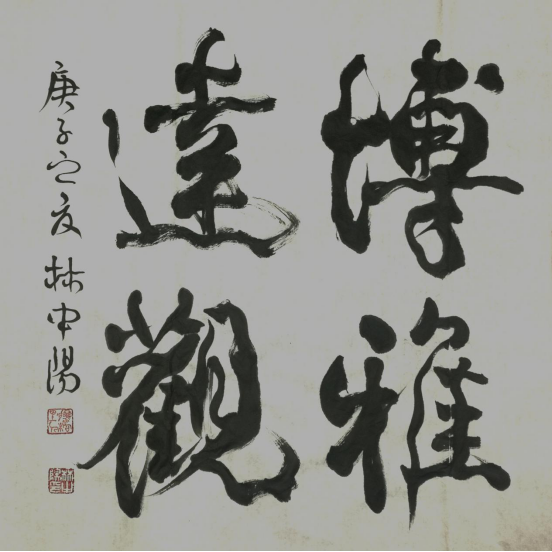 博雅
達觀
庚子之夏 林中陽